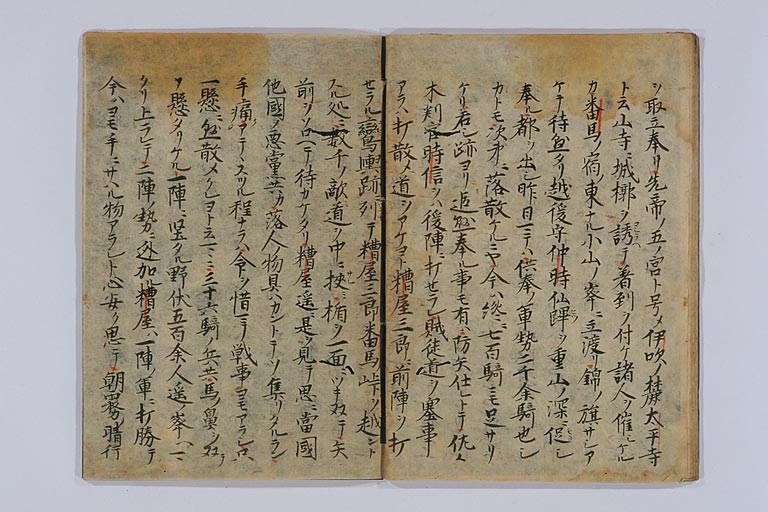 シ取立奉リ先帝ノ五ノ宮ト号メ伊吹ノ麓太平寺
ト云山寺ニ城槨ヲ誘テ着到ヲ付ケ諸人ヲ催ケル
カ番馬ノ宿東ナル小山ノ峯ニ立渡リ錦ノ旗サシア
ケテ待懸タリ越後守仲時仙蹕ヲ重山ノ深ニ促シ
奉ル都ヲ出シ昨日二テハ供奉ノ軍勢二千余騎也シ
カトモ次第ニ落散ケルニヤ今ハ終ニ七百騎ニモ足サリ
ケリ若シ跡ヨリ追懸奉ル事モ有ハ防矢仕レトテ佐々
木判官時信ヲハ後陣ニ打セラレ賊徒道ヲ塞事
アラハ打散メ道ヲアケヨト糟屋三郎ニ前陣ヲ打
セラル鸞輿跡ニ列テ糟屋三郎番馬峠ヲ越ント
スル処ニ数千ノ敵道ヲ中ニ挟ミ楯ヲ一面ニツキ双テ矢
前ヲソロヘテ待カケタリ糟屋遥ニ是ヲ見テ思ニ當國
他國ノ悪黨共カ落人ノ物具ハカントテソ集リタルラン
手痛アテヽスツル程ナラハ命ヲ惜テ戦事ヨモアラシ只
一懸ニ懸散メクレヨト云マヽニ三十六騎ノ兵共馬ノ鼻ヲ双テ
ソ懸タリケル一陣ニ堅タル野伏五百余人遥ノ峯ヘマ
クリ上ラレテ二陣ノ勢ニ逃加ル糟屋ハ一陣ノ軍ニ打勝テ
今ハヨモ手ニサハル物アラシト心安ク思テ朝霧ノ晴行